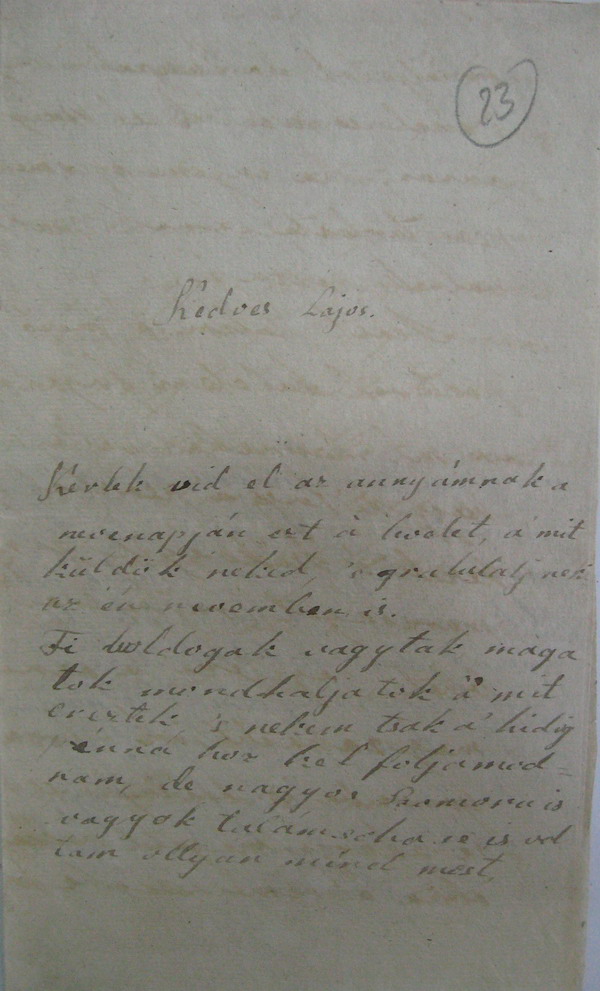 23
Kedves Lajos.
Kérlek vid el az annyámnak a
nevenapján ezt a' levelet, a' mit
küldök neked, 's gratulalj neki
az én nevemben is.
Ti boldogak vagytak maga
tok mondhatjatok a' mit
éreztek 's nekem tsak a' hidig
pénná hoz kel foljamod=
nam, de nagyon szomoru is
vagyok talám soha se is vol
tam ollyan mind most,